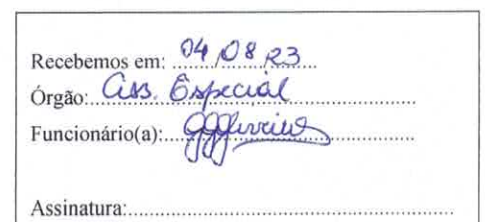 Recebemos em: 04/08/23
Órgão: Ass. Especial
Funcionário(a):
Assinatura: